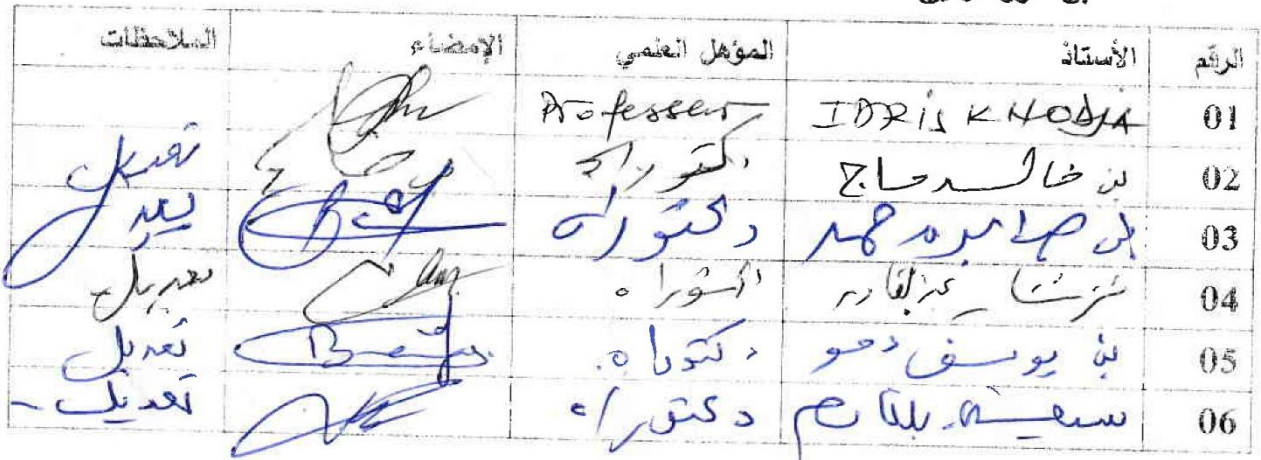 الرقم الأستاذ المؤهل العلمي الإمضاء الملاحظات
01 IDRIS KHODJA Professeur
02 بن خالد حاج دكتوراه تعديل
03 بن صابر محمد دكتوراه تعديل
04 عبد القادر دكتوراه تعديل
05 بن يوسف دحو دكتوراه تعديل
06 بلقاسم دكتوراه تعديل